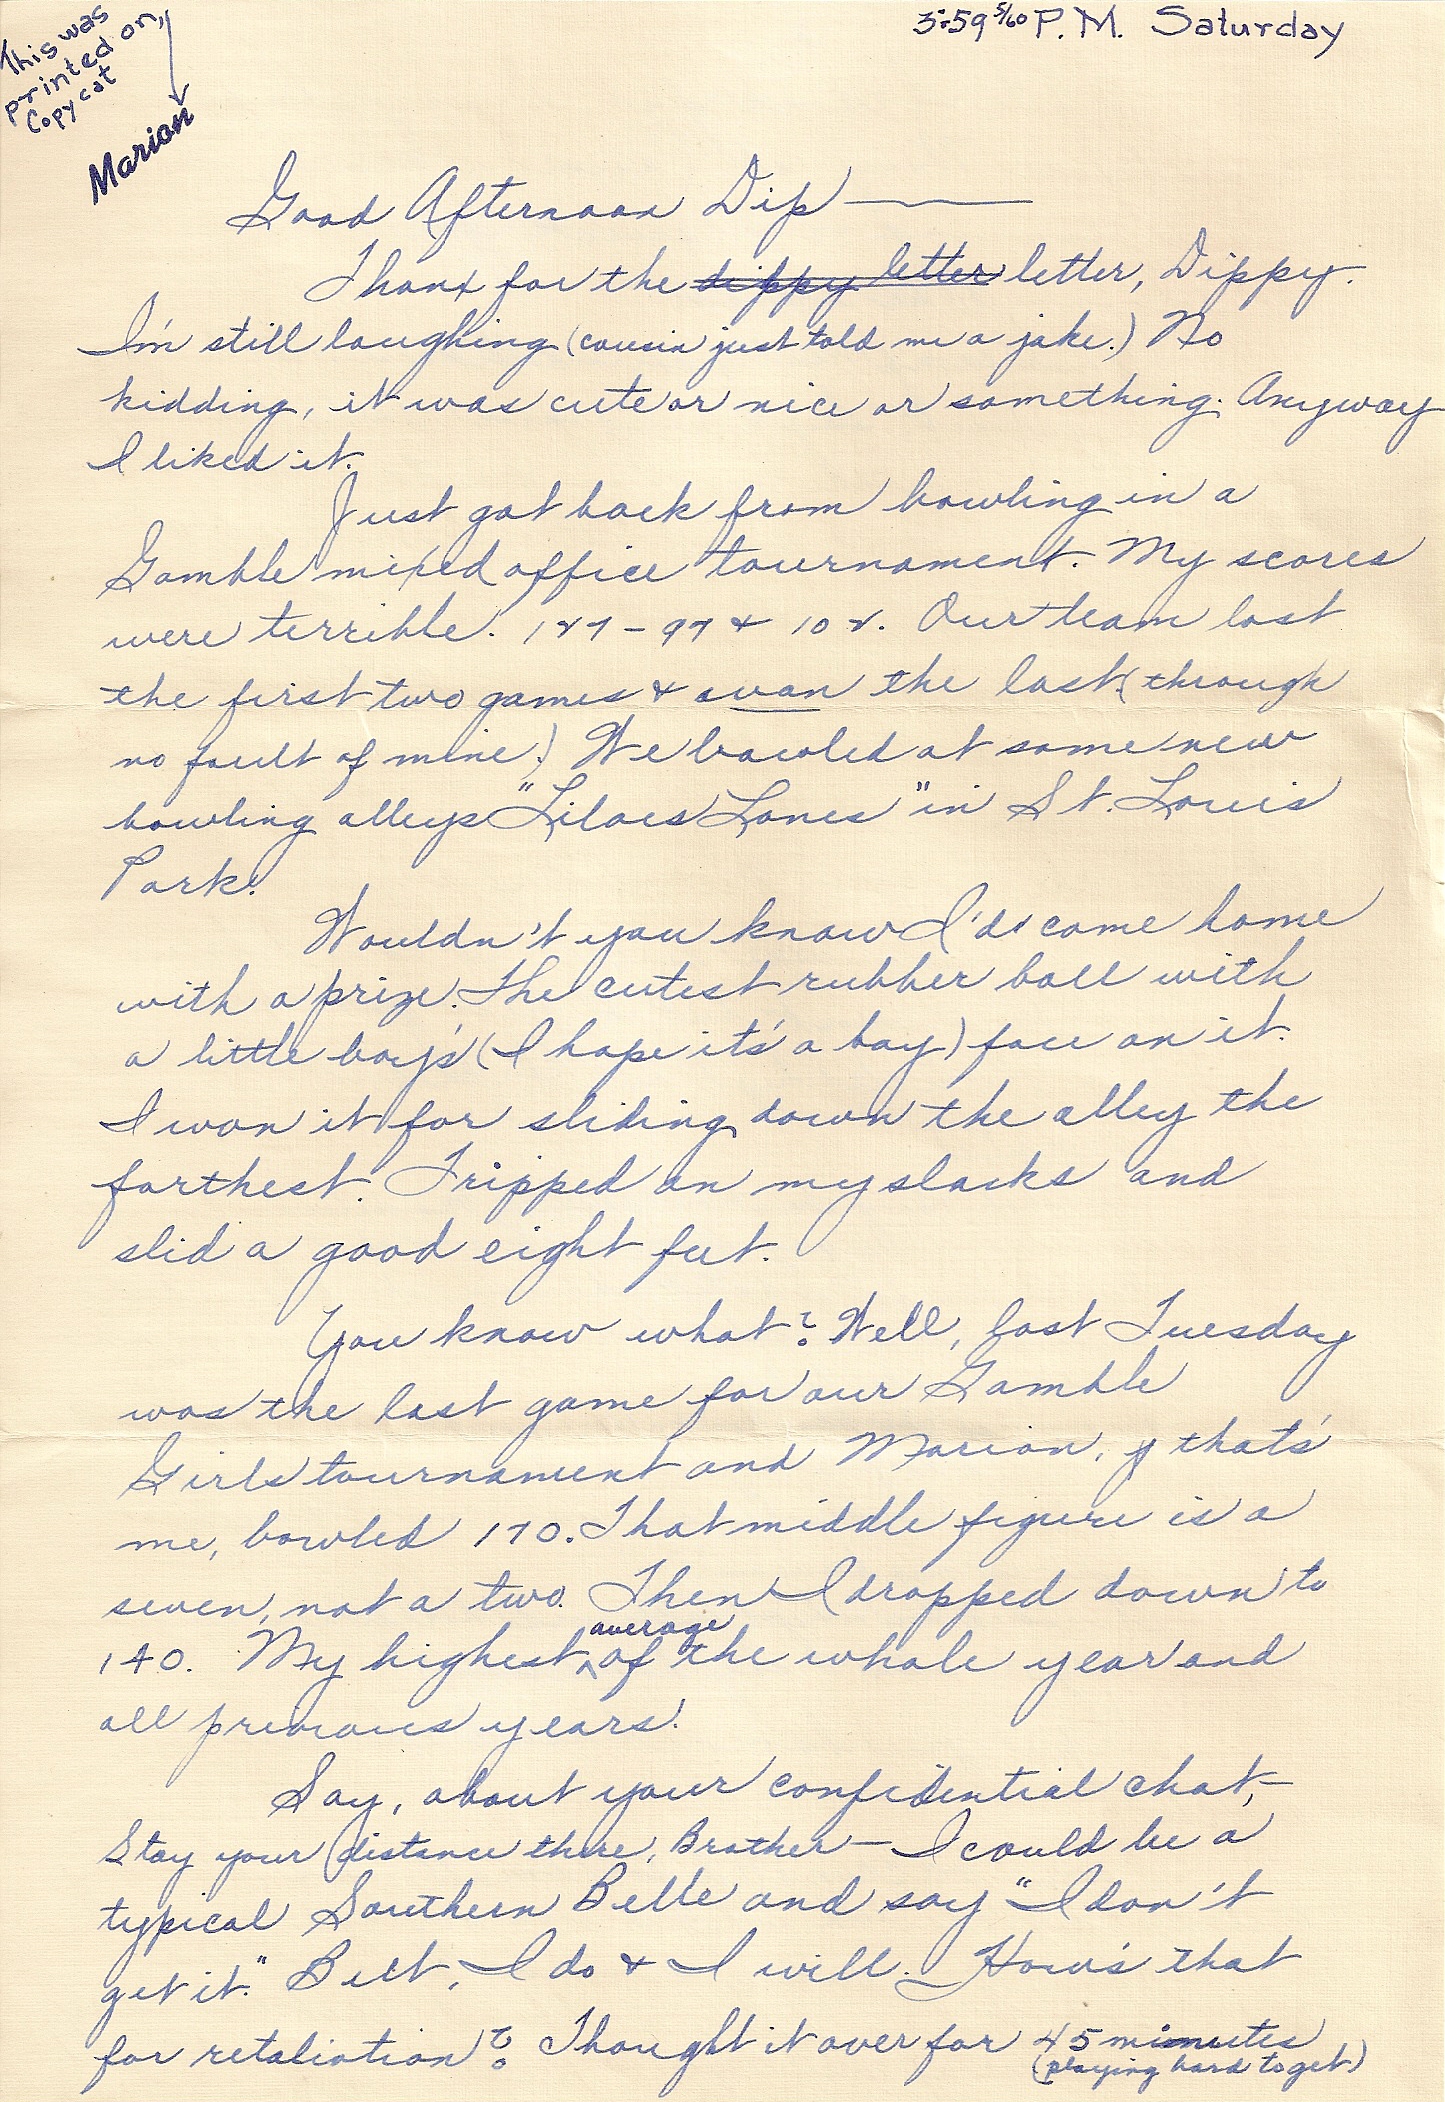 3:59 5/60 P.M. Saturday
This was
printed on
Copycat
Marion
Good Afternoon Dip
Thanx for the dippy letter letter, Dippy.
I'm still laughing (cousin just told me a joke.) No
kidding, it was cute or nice or something. Anyway
I liked it.
Just got back from bowling in a
Gamble mixed office tournament. My scores
were terrible. 127 - 97 & 102. Our team lost
the first two games & won the last (through
no fault of mine.) We bowled at some new
bowling alleys "Lilacs Lanes" in St. Louis
Park.
Wouldn't you know I'd come home
with a prize. The cutest rubber ball with
a little boy's (I hope it's a boy) face on it.
I won it for sliding down the alley the
farthest. Tripped on my slacks and
slid a good eight feet.
You know what? Well, last Tuesday
was the last game for our Gamble
Girls tournament and Marion, y that's
me, bowled 170. That middle figure is a
seven, not a two. Then I dropped down to
140. My highest average of the whole year and
all previous years.
Say, about your confidential chat,-
Stay your distance there, Brother — I could be a
typical Southern Belle and say "I don't
get it." But, I do & I will. How's that
for retaliation? Thought it over for 45 minutes
(playing hard to get)